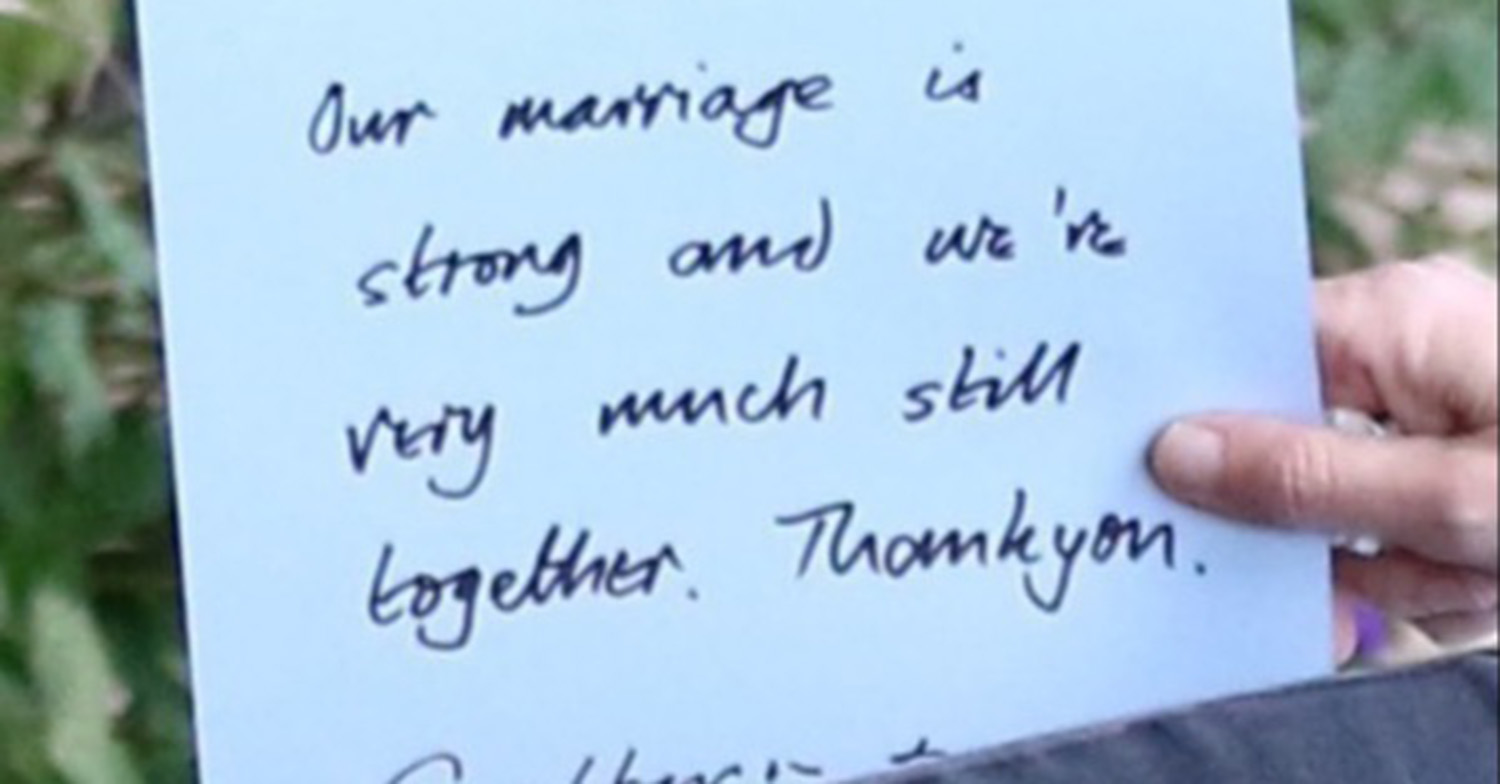 Our marriage is
strong and we're
very much still
together. Thankyou.